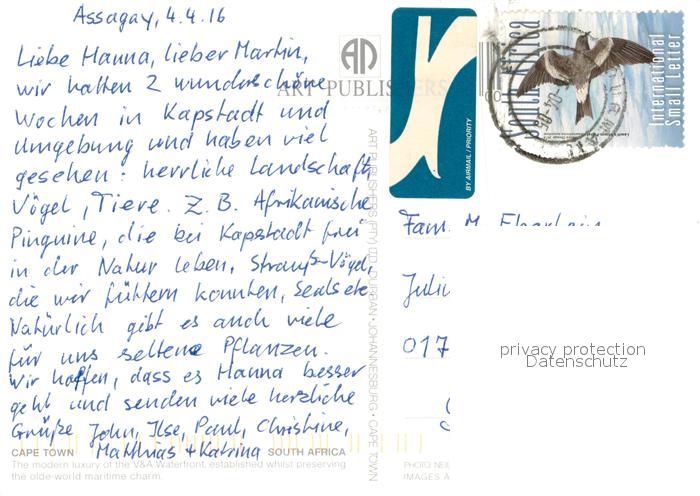 Assagay, 4.4.16
Liebe Hanna, lieber Martin,
wir hatten 2 wunderschöne
Wochen in Kapstadt und
Umgebung und haben viel
gesehen: herrliche Landschaft,
Vögel, Tiere. Z.B. Afrikanische
Pinguine, die bei Kapstadt frei
in der Natur leben, Strauß-Vögel,
die wir füttern konnten, Seals etc
Natürlich gibt es auch viele
für uns seltene Pflanzen.
Wir hoffen, dass es Hanna besser
geht und senden viele herzliche
Grüße John, Ilse, Paul, Christine,
Matthias + Katrina
CAPE TOWN SOUTH AFRICA
The modern luxury of the V&A Waterfront, established whilst preserving
the olde-world maritime charm.
ART PUBLISHERS
ART PUBLISHERS (PTY) LTD. DURBAN • JOHANNESBURG • CAPE TOWN
BY AIRMAIL / PRIORITY
South Africa
International
Small Letter
Fam. M.
017
privacy protection
Datenschutz
PHOTO NEIL
IMAGES A